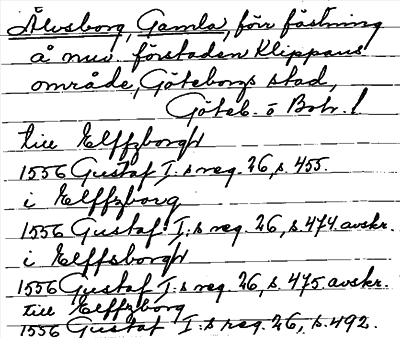 Älvsborg, Gamla, förr fästning
å nuv. förstaden Klippans
område, Göteborgs stad,
Göteb. o Boh. l
till Elffzborgh
1556 Gustaf I:s reg. 26, s. 455.
i Elffzborg
1556 Gustaf I:s reg. 26, s. 474 avskr.
i Elffsborgh
1556 Gustaf I:s reg. 26, s. 475 avskr.
till Elffzborg
1556 Gustaf I:s reg. 26, s. 492.